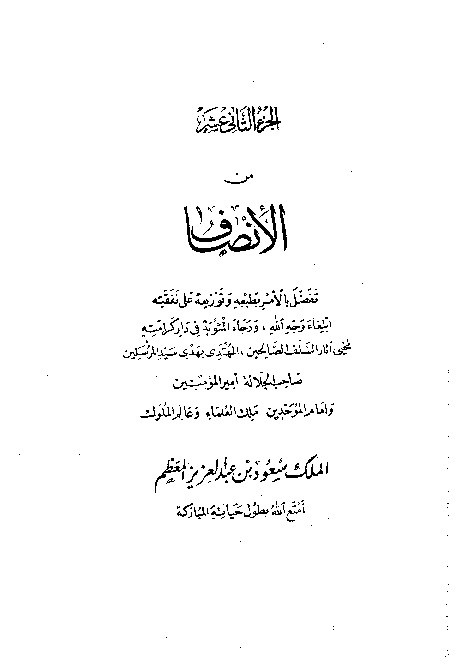 الجزء الثاني عشر
من
الأنصاف
تفضل بالأمر بطبعه وتوزيعه على نفقته
ابتغاء وجه الله، ورجاء المثوبة في دار كرامته
محيي آثار السلف الصالحين، المهتدي بهدي سيد المرسلين
صاحب الجلالة أمير المؤمنين
وإمام الموحدين ملك العلماء وعالم الملوك
الملك سعود بن عبد العزيز المعظم
أمتع الله بطول حياته المباركة